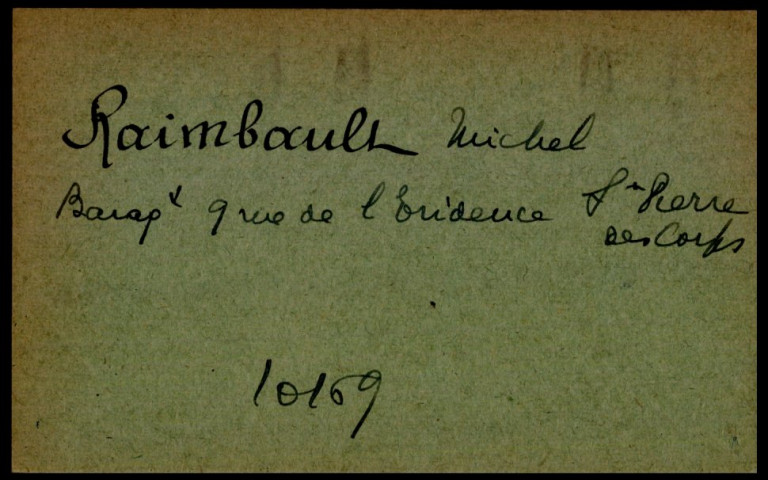 Raimbault Michel
9 rue de l'Evidence St Pierre
des Corps
10169